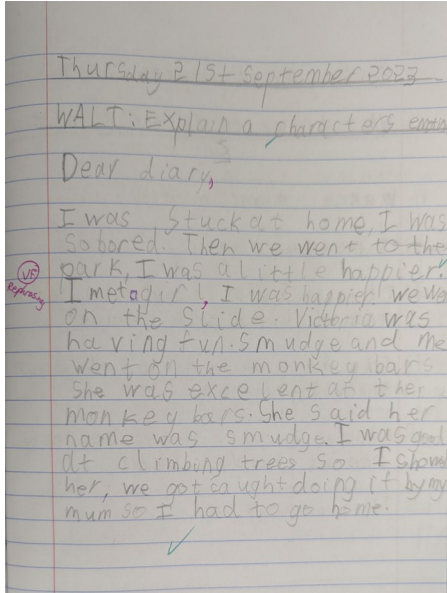 Thursday 21st September 2023
WALT: Explain a characters emotio
Dear diary,
I was stuck at home, I was
so bored. Then we went to the
park, I was a little happier.
VF
Rephrasing
I met a girl, I was happier we we
on the slide. Victoria was
having fun. Smudge and me
went on the monkey bars
She was excelent at ther
monkey bars. She said her
name was smudge. I was good
at climbing trees so I show
her, we got caught doing it by my
mum so I had to go home.